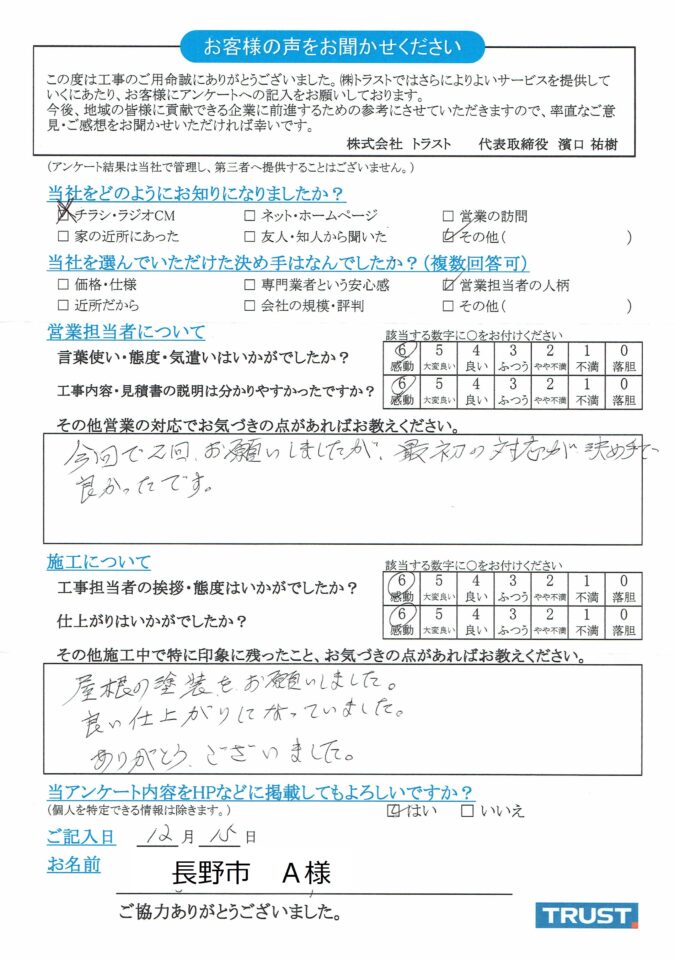 お客様の声をお聞かせください
この度は工事のご用命誠にありがとうございました。㈱トラストではさらによりよいサービスを提供して
いくにあたり、お客様にアンケートへの記入をお願いしております。
今後、地域の皆様に貢献できる企業に前進するための参考にさせていただきますので、率直なご意
見・ご感想をお聞かせいただければ幸いです。
株式会社 トラスト 代表取締役 濱口 祐樹
(アンケート結果は当社で管理し、第三者へ提供することはございません。)
当社をどのようにお知りになりましたか?
☒ チラシ・ラジオCM □ ネット・ホームページ □ 営業の訪問
□ 家の近所にあった □ 友人・知人から聞いた ☑ その他( )
当社を選んでいただけた決め手はなんでしたか?(複数回答可)
□ 価格・仕様 □ 専門業者という安心感 ☑ 営業担当者の人柄
□ 近所だから □ 会社の規模・評判 □ その他( )
営業担当者について 該当する数字に○をお付けください
言葉使い・態度・気遣いはいかがでしたか? 6 5 4 3 2 1 0
感動 大変良い 良い ふつう やや不満 不満 落胆
工事内容・見積書の説明は分かりやすかったですか? 6 5 4 3 2 1 0
感動 大変良い 良い ふつう やや不満 不満 落胆
その他営業の対応でお気づきの点があればお教えください。
今回で2回、お願いしましたが、最初の対応が決め手で
良かったです。
施工について 該当する数字に○をお付けください
工事担当者の挨拶・態度はいかがでしたか? 6 5 4 3 2 1 0
感動 大変良い 良い ふつう やや不満 不満 落胆
仕上がりはいかがでしたか? 6 5 4 3 2 1 0
感動 大変良い 良い ふつう やや不満 不満 落胆
その他施工中で特に印象に残ったこと、お気づきの点があればお教えください。
屋根の塗装をお願いしました。
良い仕上がりになっていました。
ありがとうございました。
当アンケート内容をHPなどに掲載してもよろしいですか?
(個人を特定できる情報は除きます。) ☑ はい □ いいえ
ご記入日 12 月 15 日
お名前 長野市 A様
ご協力ありがとうございました。
TRUST.